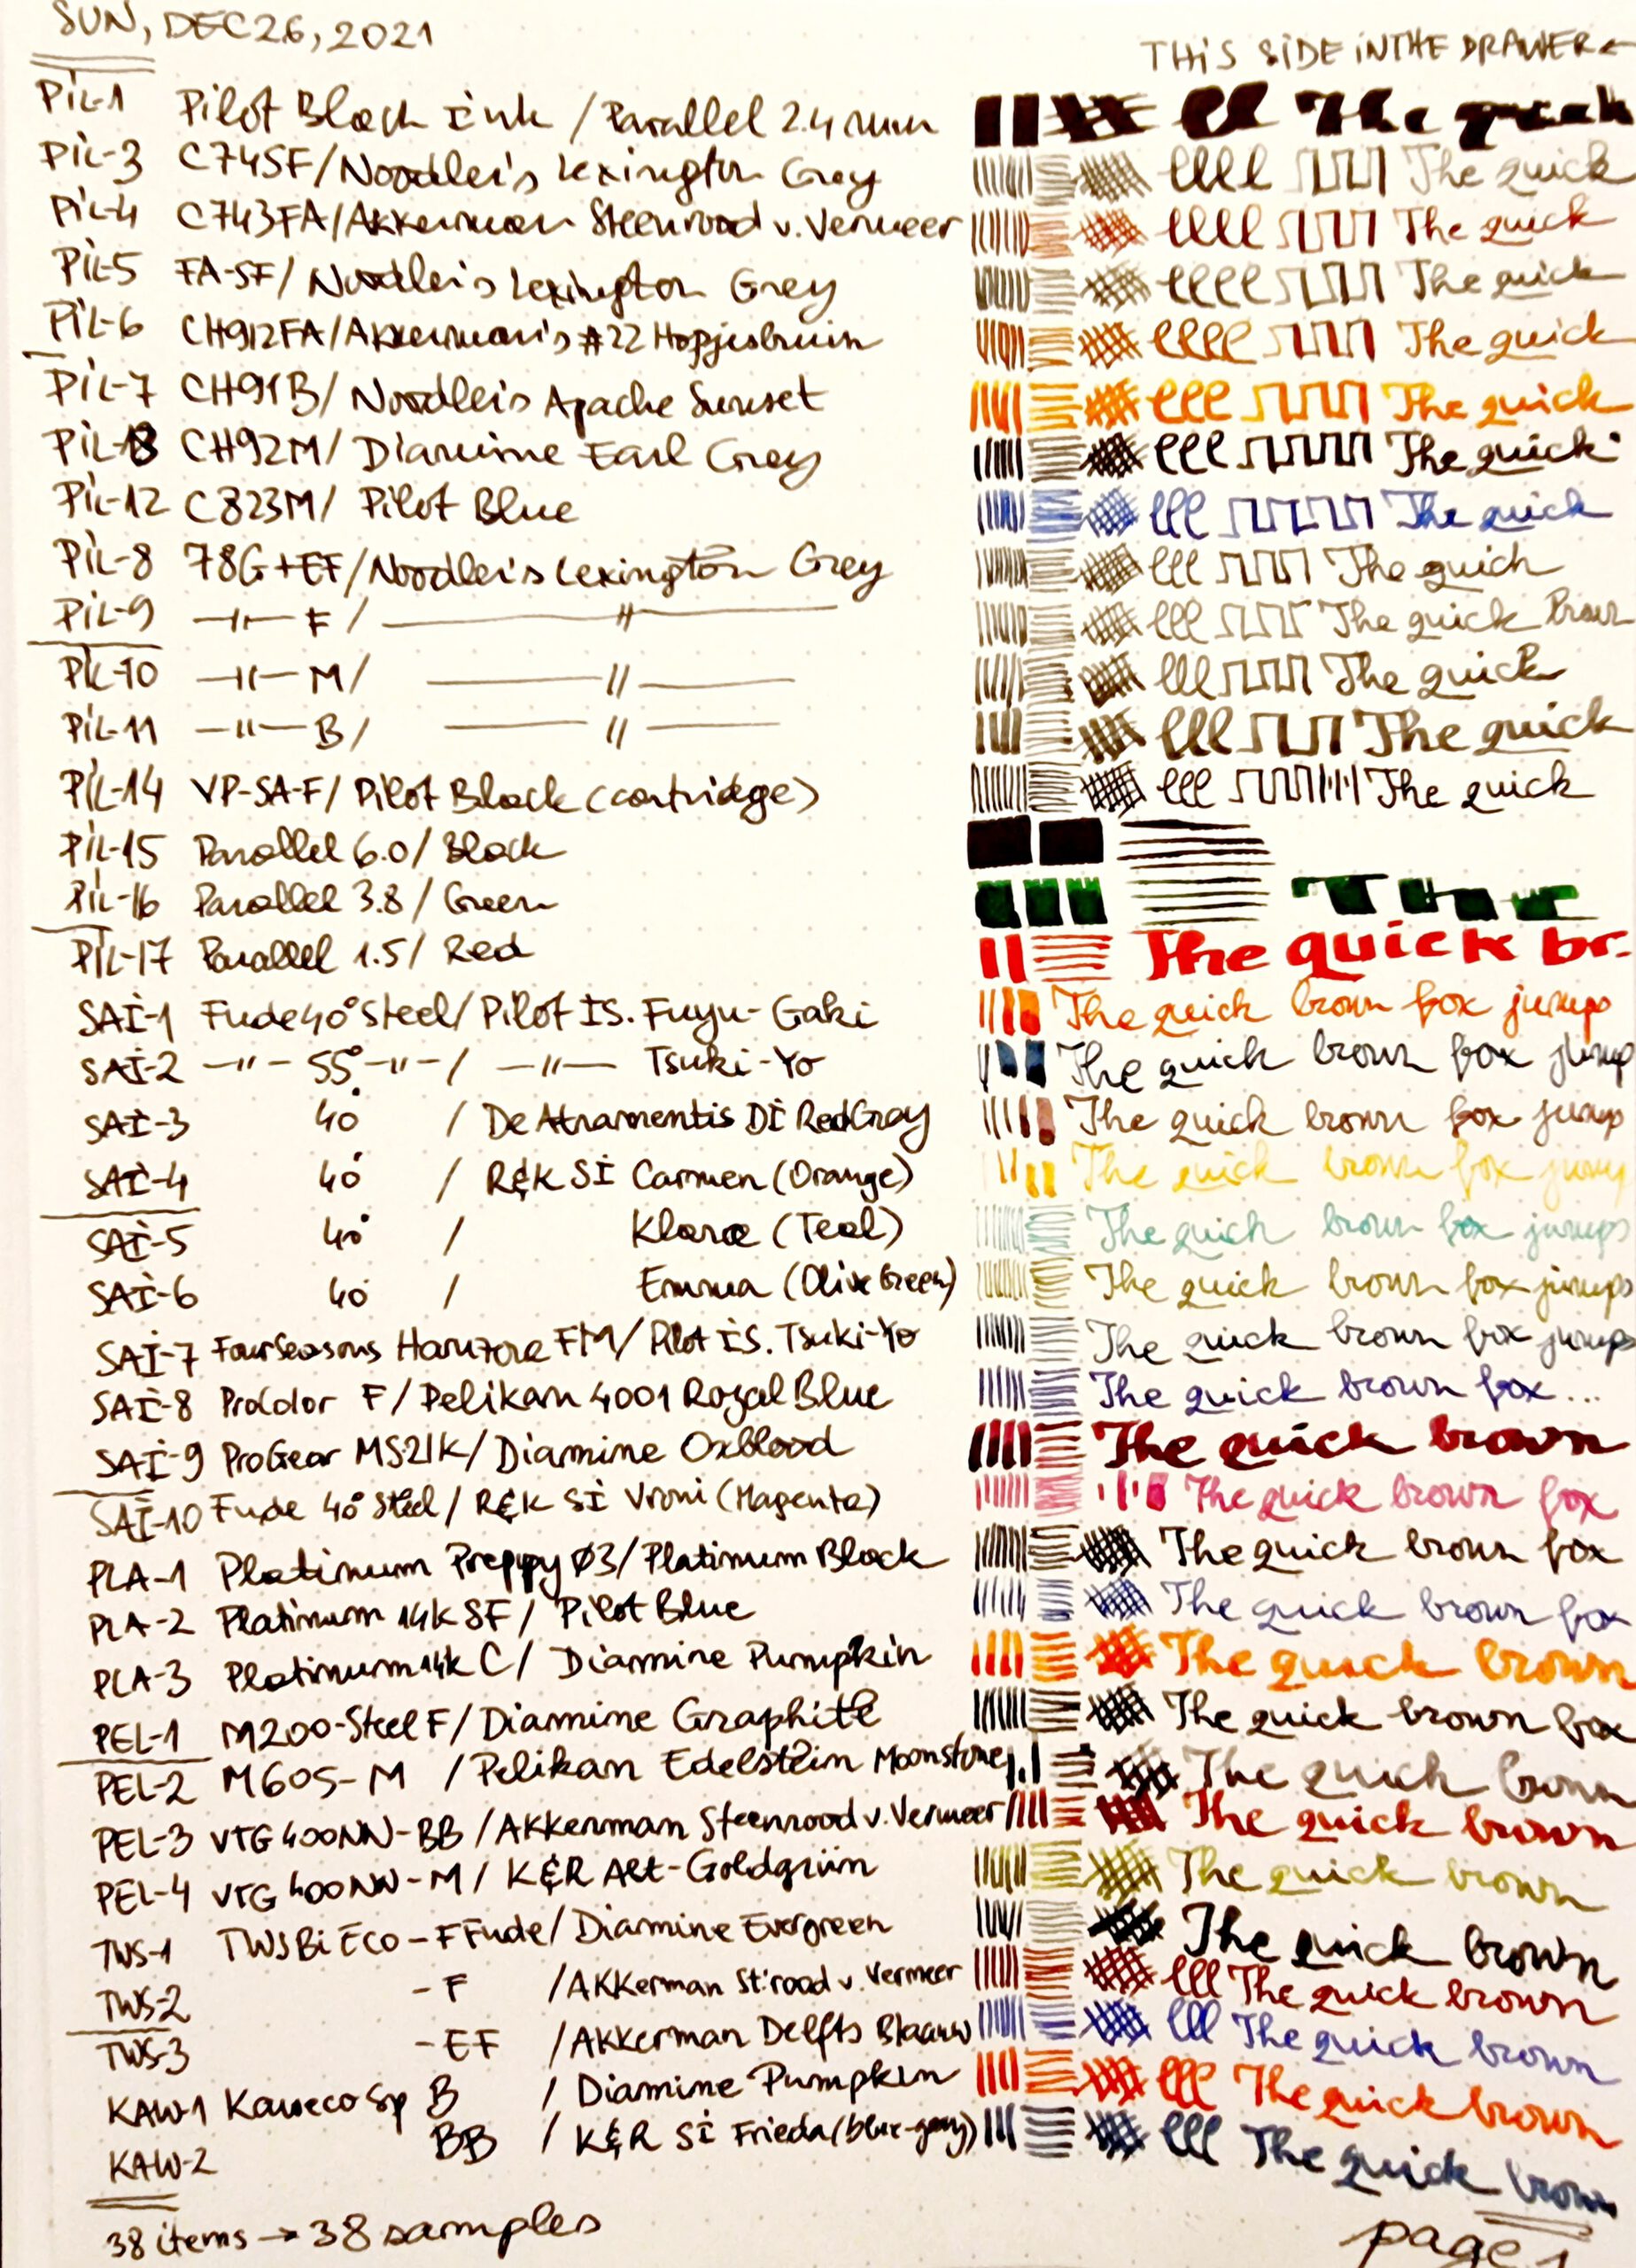 SUN, DEC 26, 2021
THIS SIDE IN THE DRAWER ←
PIL-1 Pilot Black Ink / Parallel 2.4 mm The quick
PIL-3 C74SF/Noodler's Lexington Grey llll The quick
PIL-4 C743FA/Akkerman Steenrood v. Vermeer llll The quick
PIL-5 FA-SF/ Noodler's Lexington Grey llll The quick
PIL-6 CH912FA/Akkerman's #22 Hopjesbruin llll The quick
PIL-7 CH91B/ Noodler's Apache Sunset lll The quick
PIL-13 CH92M/ Diamine Earl Grey lll The quick
PIL-12 C823M/ Pilot Blue lll The quick
PIL-8 78G+EF/Noodler's Lexington Grey lll The quick
PIL-9 —"— F / —"— lll The quick brown
PIL-10 —"— M/ —"— lll The quick
PIL-11 —"— B/ —"— lll The quick
PIL-14 VP-SA-F/ Pilot Black (cartridge) lll The quick
PIL-15 Parallel 6.0/ Black
PIL-16 Parallel 3.8/ Green The
PIL-17 Parallel 1.5/ Red The quick br.
SAI-1 Fude 40° Steel/ Pilot IS. Fuyu-Gaki The quick brown fox jumps
SAI-2 —"— 55° —"— / —"— Tsuki-Yo The quick brown fox jump
SAI-3 40° / De Atramentis DI Red Gray The quick brown fox jumps
SAI-4 40° / R&K SI Carmen (Orange) The quick brown fox jump
SAI-5 40° / Klara (Teal) The quick brown fox jumps
SAI-6 40° / Emma (Olive Green) The quick brown fox jumps
SAI-7 Four Seasons Haruzora FM/ Pilot IS. Tsuki-Yo The quick brown fox jumps
SAI-8 ProColor F/ Pelikan 4001 Royal Blue The quick brown fox...
SAI-9 ProGear MS21K/ Diamine Oxblood The quick brown
SAI-10 Fude 40° Steel / R&K SI Vroni (Magenta) The quick brown fox
PLA-1 Platinum Preppy Ø3/ Platinum Black The quick brown fox
PLA-2 Platinum 14K SF/ Pilot Blue The quick brown fox
PLA-3 Platinum 14k C/ Diamine Pumpkin The quick brown
PEL-1 M200-Steel F/ Diamine Graphite The quick brown fox
PEL-2 M605-M / Pelikan Edelstein Moonstone The quick brown
PEL-3 VTG 400NN-BB / AKKerman Steenrood v. Vermeer The quick brown
PEL-4 VTG 400NN-M / K&R Alt-Goldgrün The quick brown
TWS-1 TWSBi Eco - F Fude/ Diamine Evergreen The quick brown
TWS-2 - F / AKKerman St'rood v. Vermeer lll The quick brown
TWS-3 - EF / AKKerman Delfts Blaauw lll The quick brown
KAW-1 Kaweco Sp B / Diamine Pumpkin lll The quick brown
KAW-2 BB / K&R SI Frieda (blue-gray) lll The quick brown
38 items → 38 samples
page 1